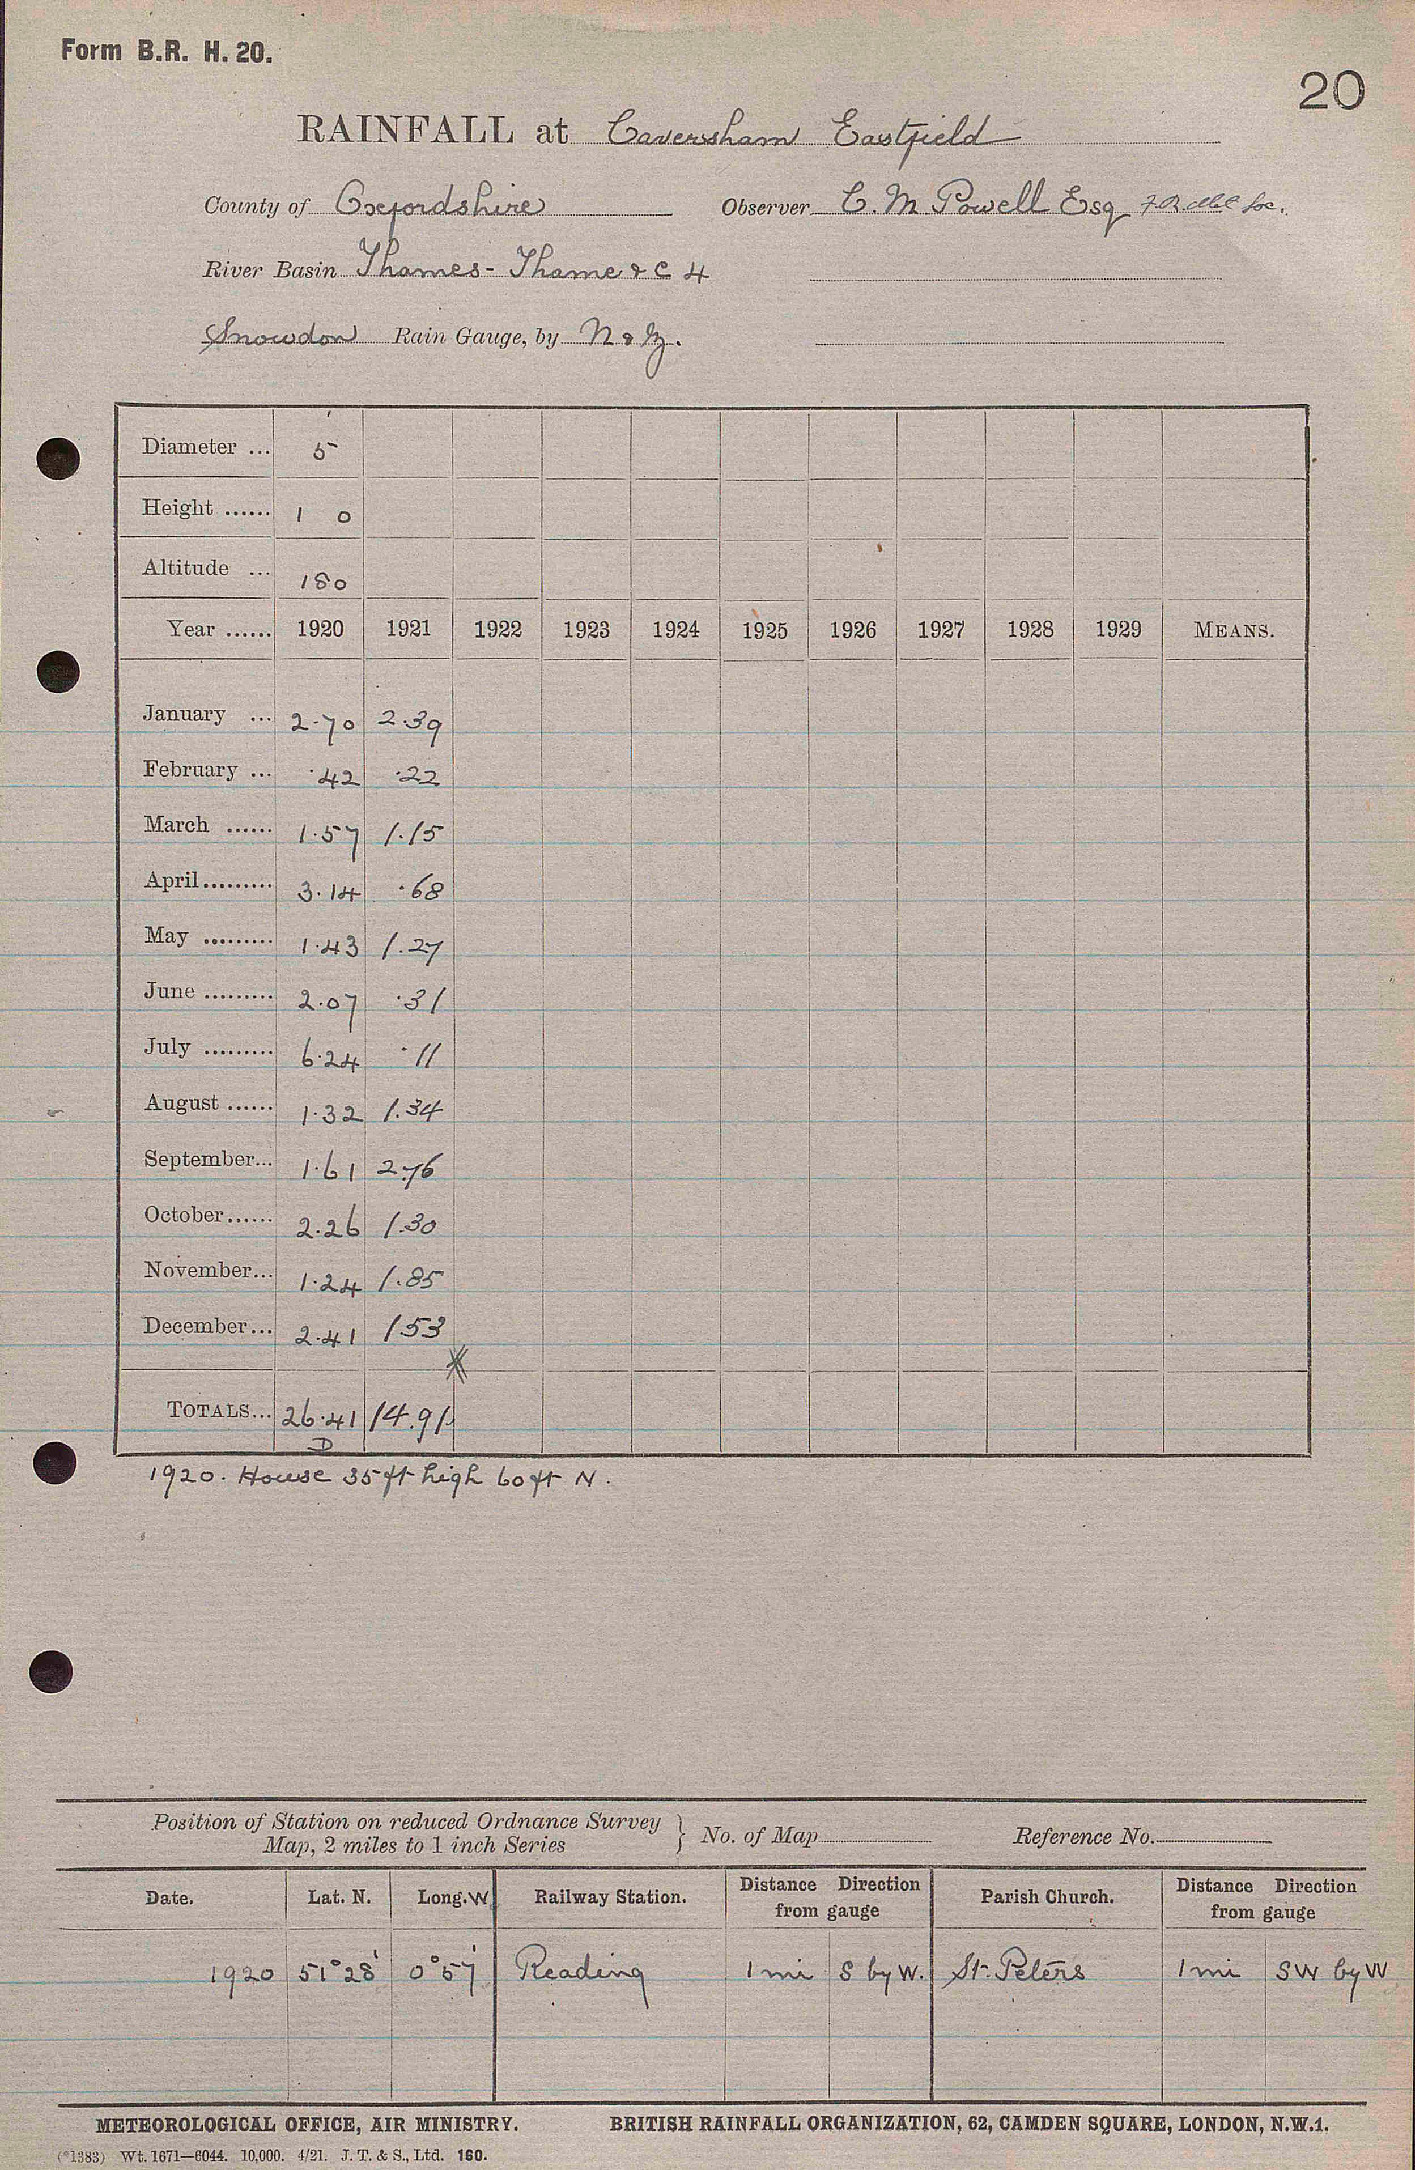 Form B.R. H. 20.
20
RAINFALL at Caversham Eastfield
County of Oxfordshire Observer C. M. Powell Esq F.R. Met Soc.
River Basin Thames - Thame & C 4
Snowdon Rain Gauge, by N & Z.
Diameter ... 5
Height ...... 1 0
Altitude ... 180
Year ...... 1920 1921 1922 1923 1924 1925 1926 1927 1928 1929 MEANS.
January ... 2.70 2.39
February ... .42 .22
March ...... 1.57 1.15
April ......... 3.14 .68
May ......... 1.43 1.27
June ......... 2.07 .31
July ......... 6.24 .11
August ...... 1.32 1.34
September... 1.61 2.76
October...... 2.26 1.30
November... 1.24 1.85
December... 2.41 1.53
TOTALS... 26.41 14.91
D
1920. House 35ft high 60ft N.
Position of Station on reduced Ordnance Survey
Map, 2 miles to 1 inch Series } No. of Map Reference No.
Date. Lat. N. Long. W Railway Station. Distance Direction from gauge Parish Church. Distance Direction from gauge
1920 51°28' 0°57' Reading 1 mi S by W. St. Peters 1 mi SW by W
METEOROLOGICAL OFFICE, AIR MINISTRY. BRITISH RAINFALL ORGANIZATION, 62, CAMDEN SQUARE, LONDON, N.W.1.
(*1383) Wt. 1671—6044. 10,000. 4/21. J. T. & S., Ltd. 160.